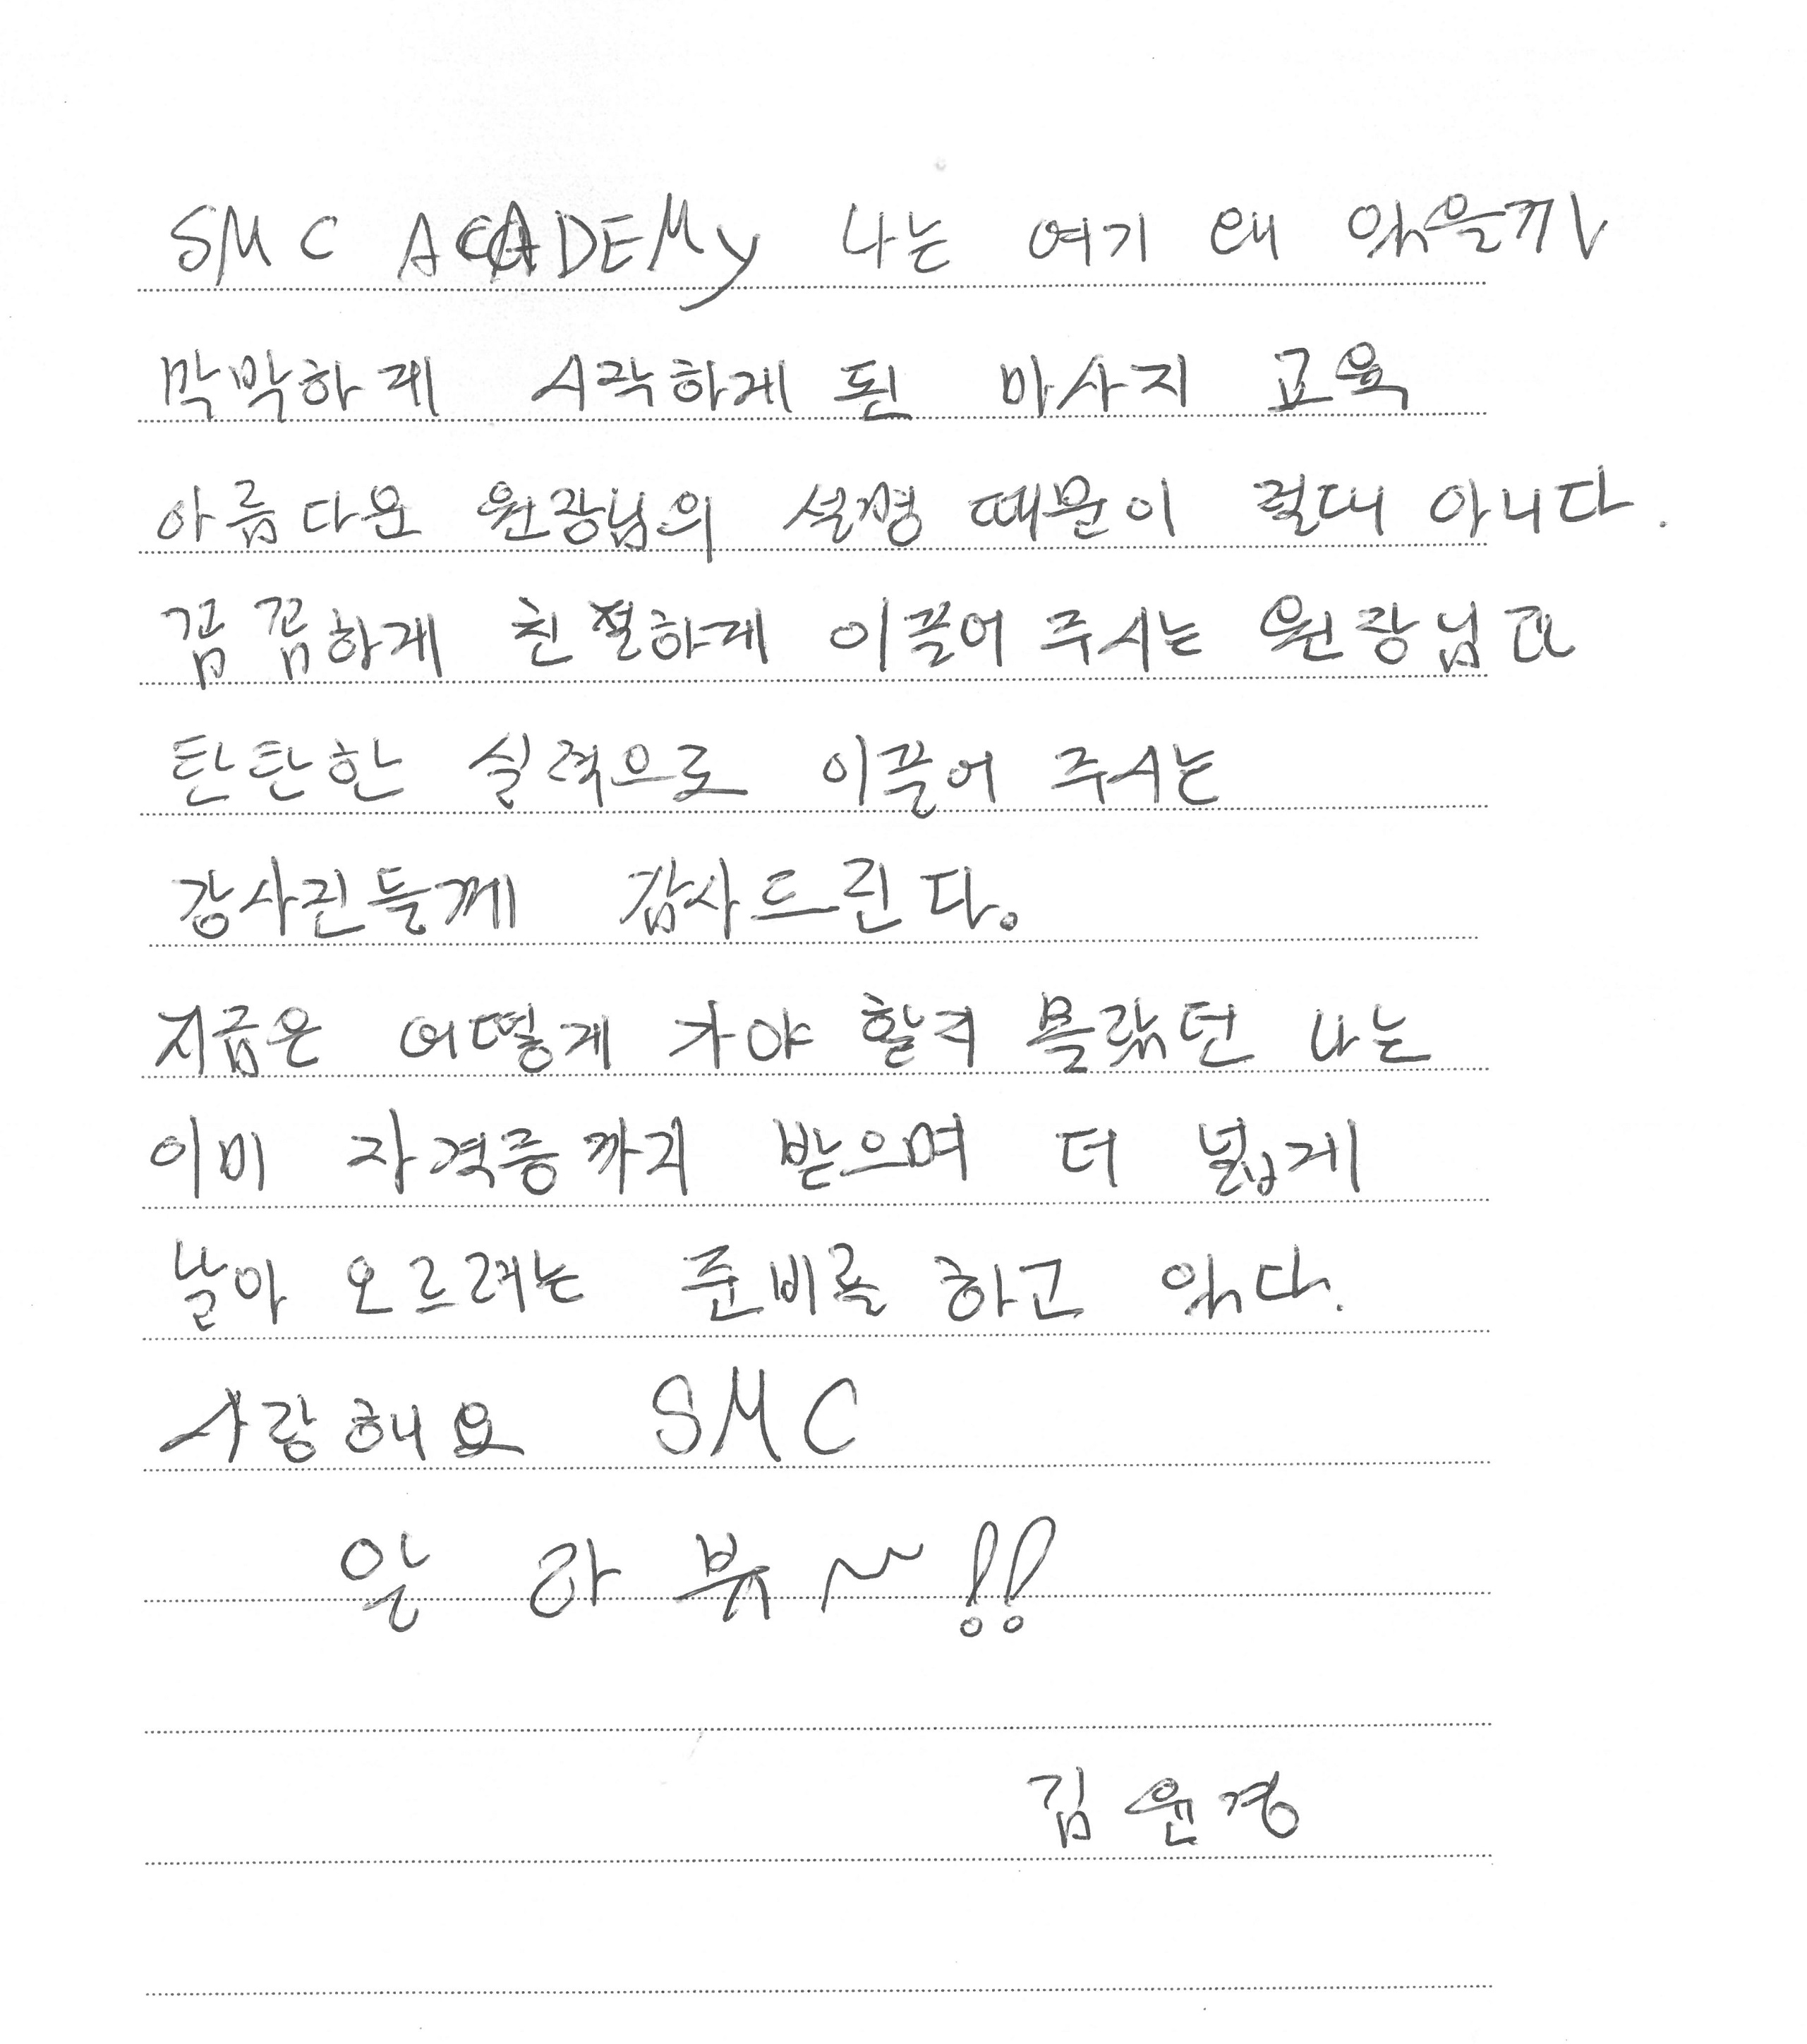 SMC ACADEMy 나는 여기 왜 있을까
막막하게 시작하게 된 마사지 교육
아름다운 원장님의 설명 때문이 절대 아니다.
꼼꼼하게 친절하게 이끌어 주시는 원장님과
탄탄한 실력으로 이끌어 주시는
강사진들께 감사드린다.
지금은 어떻게 가야 할지 몰랐던 나는
이미 자격증까지 받으며 더 넓게
날아 오르려는 준비를 하고 있다.
사랑해요 SMC
알 라 뷰~!!
김윤경